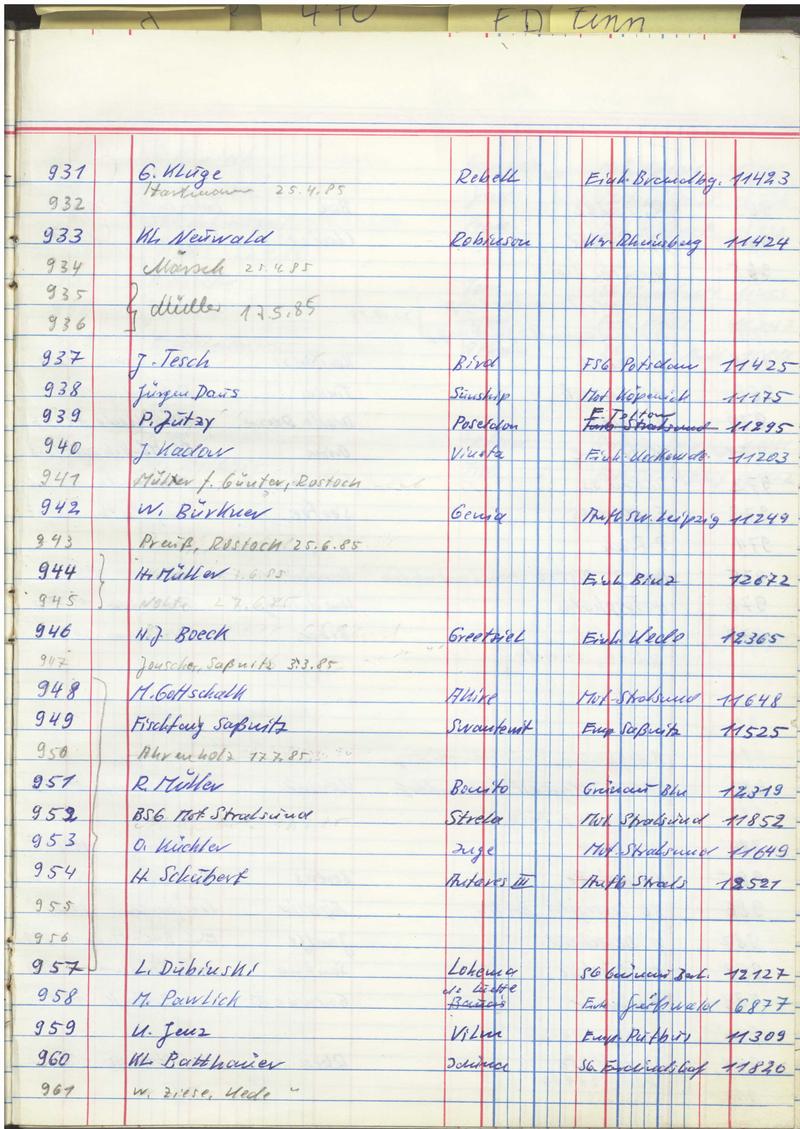 470 FD Finn
931 G. Kluge Rebell Einh. Brandbg. 11423
932 Hartmann 25.4.85
933 Kl. Neuwald Robinson Rheinsberg 11424
934 Marsch 25.4.85
935
936 } Müller 17.5.85
937 J. Tesch Bird FSG Potsdam 11425
938 Jürgen Daus Sunship Mot. Köpenick 11175
939 P. Jutzy Poseidon E. Teltow Stralsund 11295
940 J. Kadow Vineta Einh. 11203
941 Müller f. Günter, Rostock
942 W. Bürkner Genia Aufb. SW. Leipzig 11249
943 Preuß, Rostock 25.6.85
944 H. Müller Einh. Binz 12672
945
946 H.J. Boeck Greetsiel Einh. 12365
947 Saßnitz 3.3.85
948 M. Gottschalk Mot. Stralsund 11648
949 Fischfang Saßnitz Swantewit Emp. Saßnitz 11525
950 Ahrenholz 17.7.85
951 R. Müller Bonito Grünau Bln 12319
952 BSG Mot. Stralsund Strela Mot. Stralsund 11852
953 O. Küchler Inge Mot. Stralsund 11649
954 H. Schubert Antares III Aufb. Strals 12521
955
956
957 L. Dubinski Lohema SG Grünau Berl. 12127
958 M. Pawlich Einh. Greifswald 6877
959 U. Jenz Vilm Emp. Putbus 11309
960 Kl. Batthauer SG. 11826
961 W. Ziese,